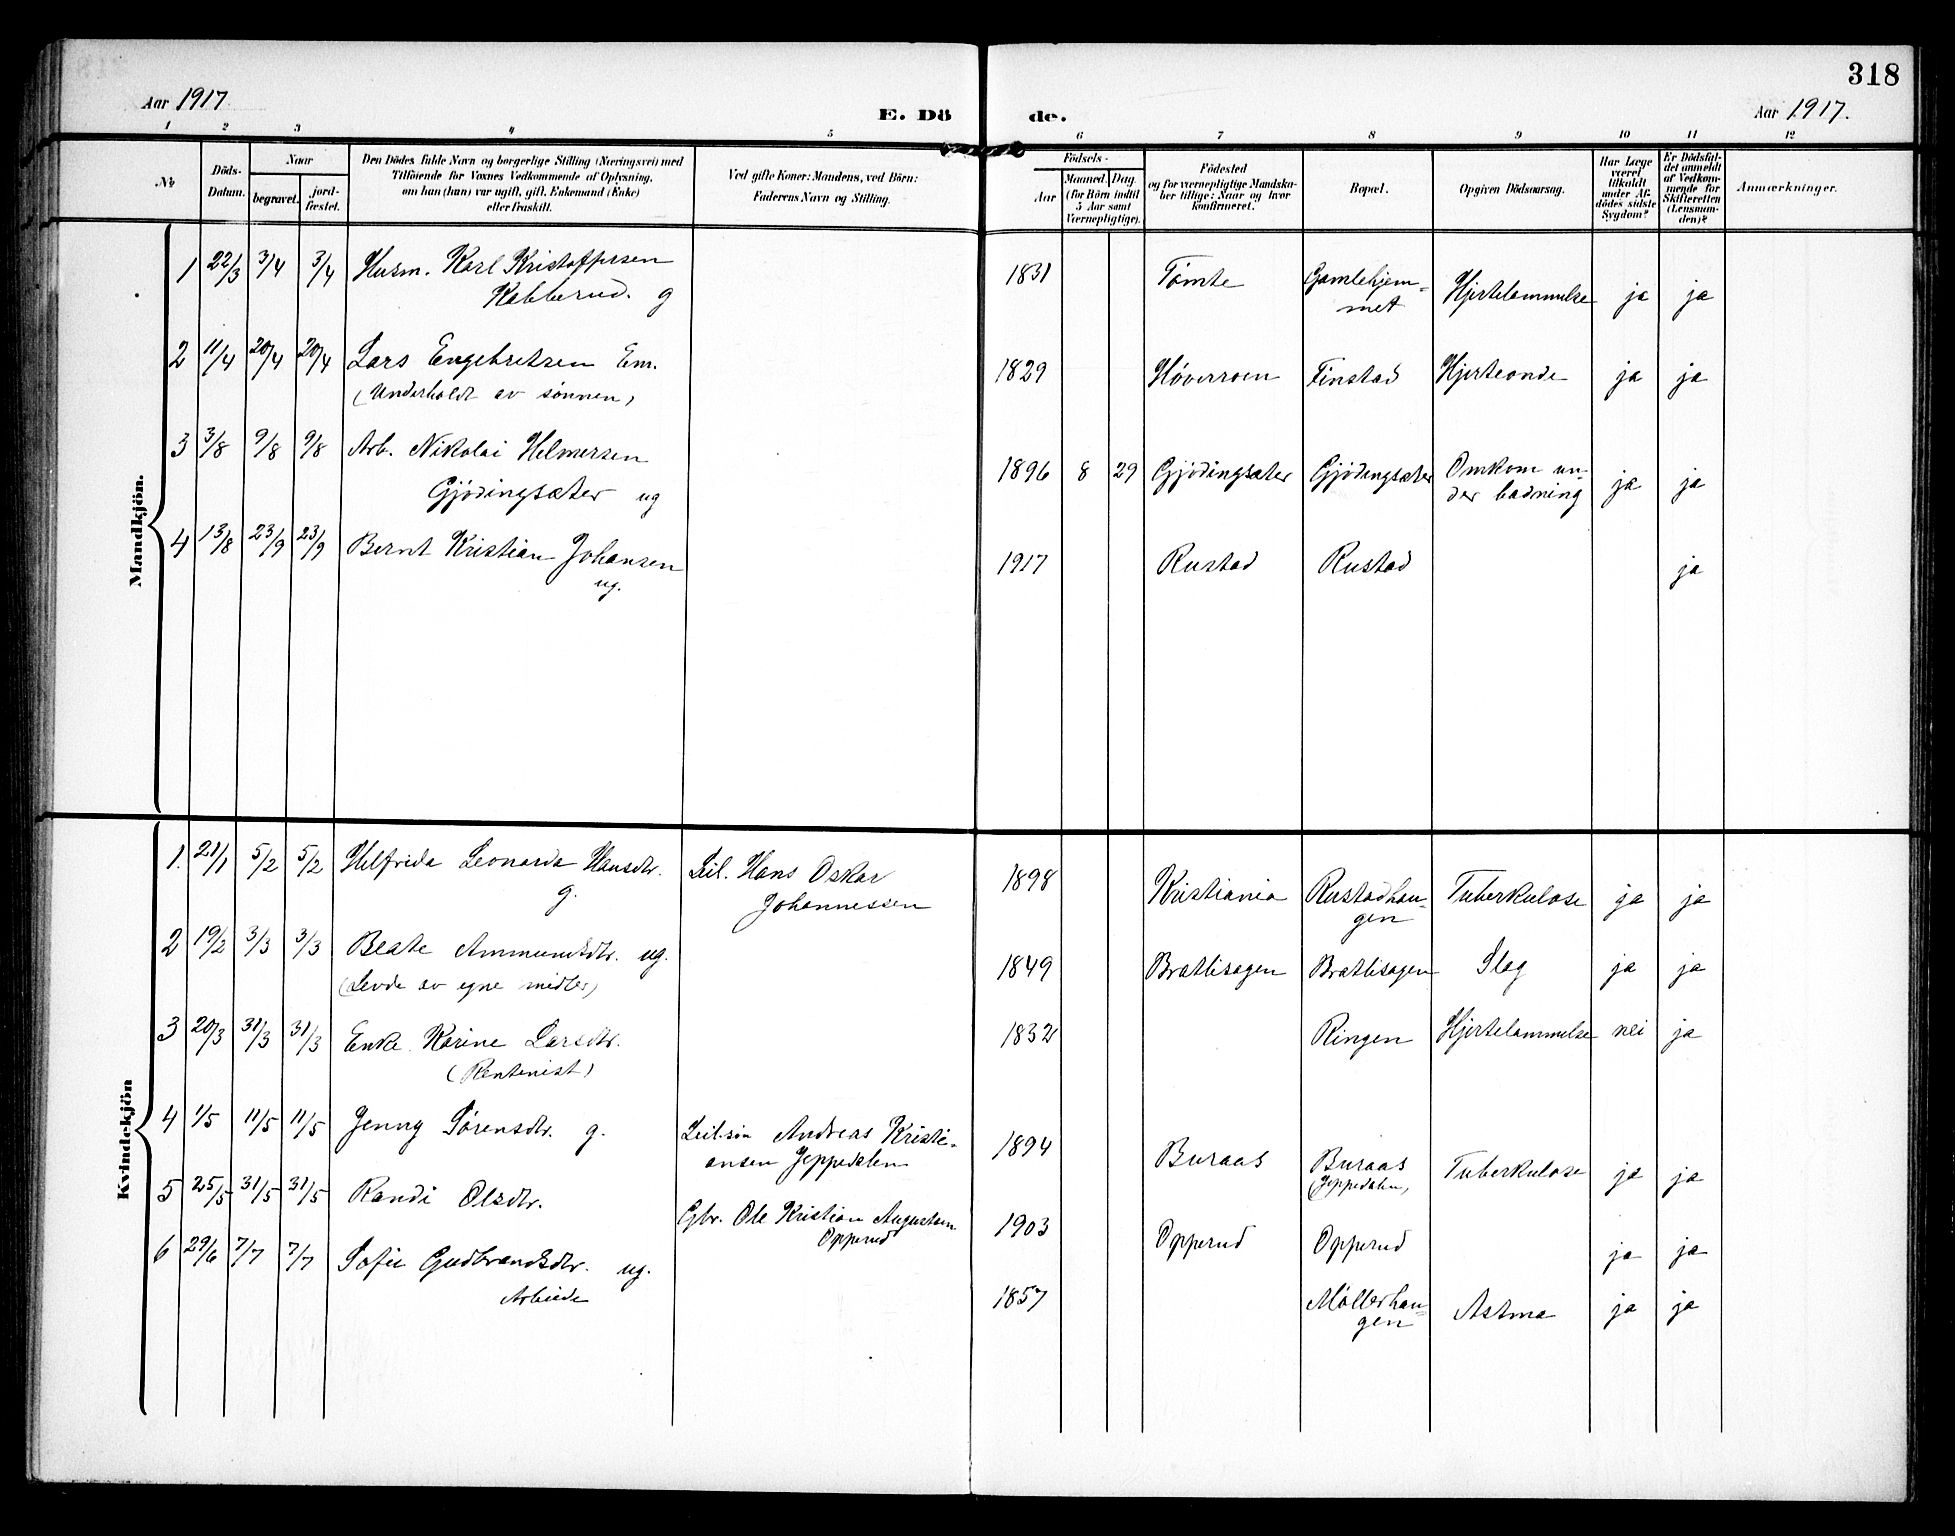 318
Aar 1917
E. Dö de.
Aar 1917.
1 2 3 4 5 6 7 8 9 10 11 12
No
Döds-
Datum.
Naar
begravet.
jord-
fæstet.
Den Dödes fulde Navn og borgerlige Stilling (Næringsvei) med
Tilföiende for Voxnes Vedkommende af Oplysning,
om han (hun) var ugift, gift, Enkemand (Enke)
eller fraskilt.
Ved gifte Koner: Mandens, ved Börn:
Faderens Navn og Stilling.
Födsels-
Aar
Maaned. Dag
(for Börn indtil
5 Aar samt
Værnepligtige).
Födested
og for værnepligtige Mandska-
ber tillige: Naar og hvor
konfirmeret.
Bopæl.
Opgiven Dödsaarsag.
Har Læge
været
tilkaldt
under Af-
dödes sidste
Sygdom?
Er Dödsfal-
det anmeldt
af Vedkom-
mende for
Skifteretten
(Lensman-
den)?
Anmærkninger.
Mandkjön.
1 22/3 3/4 3/4 Husm. Karl Kristoffersen
Kabberud. g
1831 Tømte Gamlehjem-
met Hjertelammelse ja ja
2 11/4 20/4 20/4 Lars Engebretsen Em.
(Underholdt av sønnen)
1829 Høverroen Finstad Hjerteonde ja ja
3 3/8 9/8 9/8 Arb. Nikolai Helmersen
Gjødingsæter ug
1896 8 29 Gjødingsæter Gjødingsæter Omkom un-
der badning ja ja
4 13/8 23/9 23/9 Bernt Kristian Johansen
ug.
1917 Rustad Rustad ja
Kvindekjön
1. 21/1 5/2 5/2 Helfrida Leonarda Hansdtr.
g.
Leil. Hans Oskar
Johannessen
1898 Kristiania Rustadhau-
gen Tuberkulose ja ja
2 19/2 3/3 3/3 Beate Ammundsdtr. ug.
(Levde av egne midler)
1849 Bratlisagen Bratlisagen Slag ja ja
3 20/3 31/3 31/3 Enke Karine Larsdtr.
(Rentenist)
1832 Ringen Hjertelammelse nei ja
4 1/5 11/5 11/5 Jenny Sørensdtr. g.
Andreas Kristi-
ansen Jeppedalen
1894 Buraas Buraas
(Jeppedalen) Tuberkulose ja ja
5 25/5 31/5 31/5 Randi Olsdtr.
Gbr. Ole Kristian Augustsen
Opperud
1903 Opperud Opperud ja ja
6 29/6 7/7 7/7 Sofie Gudbrandsdtr. ug.
1857 Møllerhau-
gen Astma ja ja